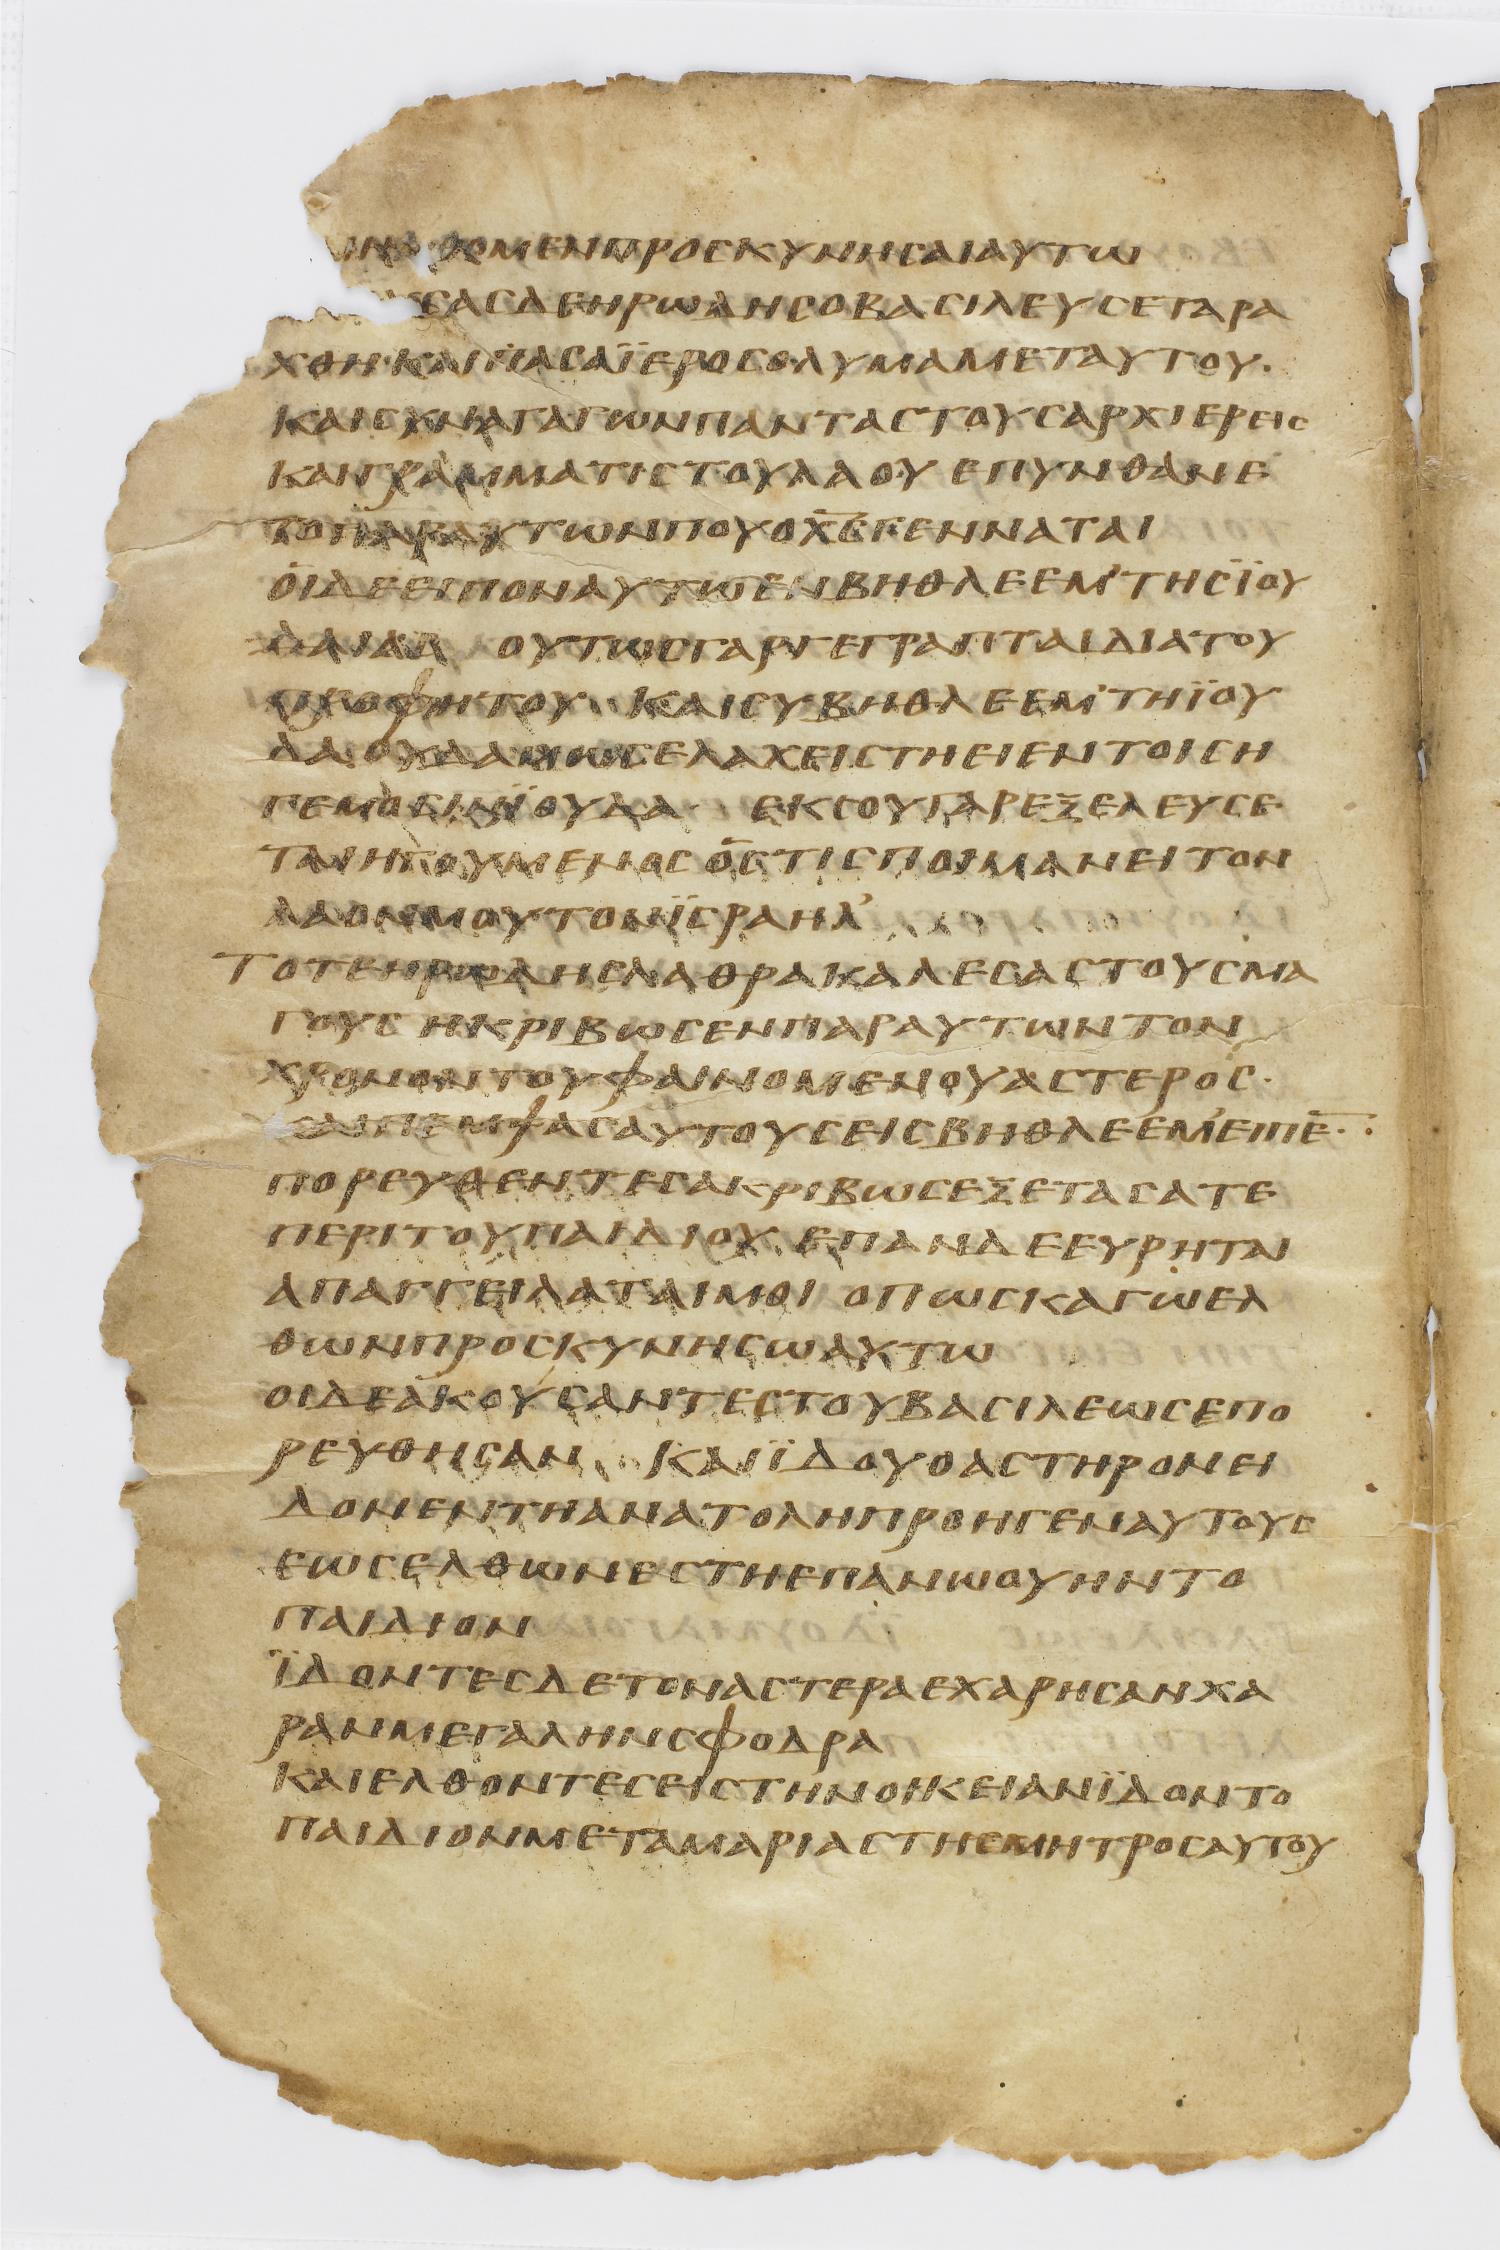 ηλθομενπροσκυνησαιαυτω
σασδεηρωδησοβασιλευσεταρα
χθη·καιπασαϊεροσολυμαμεταυτου.
καισυναγαγωνπανταστουσαρχιερεισ
καιγραμματιστουλαουεπυνθανε
τοπαραυτωνπουοχ̅σ̅γενναται
οιδεειπον αυτωενβηθλεεμ'τησϊου
δαιασ ουτωσγαργεγραπταιδιατου
προφητου καισυβηθλεεμ'τηϊου
δαουδαμωσελαχειστηειεντοισ η
γεμοσινϊουδα εκσουγαρεξελευσε
ταιηγουμενοσοστισποιμανειτον
λαονμουτονϊσραηλ'
τοτεηρωδησλαθρακαλεσαστουσμα
γουσηκριβωσενπαραυτωντον
χρονοντουφαινομενουαστεροσ·
καιπεμψασαυτουσεισβηθλεεμ'ειπε̅·
πορευθεντεσακριβωσεξετασατε
περιτουπαιδιου επανδεευρηται
απαγγειλαταιμοι οπωσκαγωελ
θωνπροσκυνησωαυτω
οιδεακουσαντεστουβασιλεωσεπο
ρευθησαν καιϊδουοαστηρονει
δονεντηανατοληπροηγεναυτουσ
εωσελθωνεστηεπανωουηντο
παιδιον
ϊδοντεσδετοναστεραεχαρησανχα
ρανμεγαληνσφοδρα
καιελθοντεσειστηνοικειανϊδοντο
παιδιονμεταμαριαστησμητροσαυτου